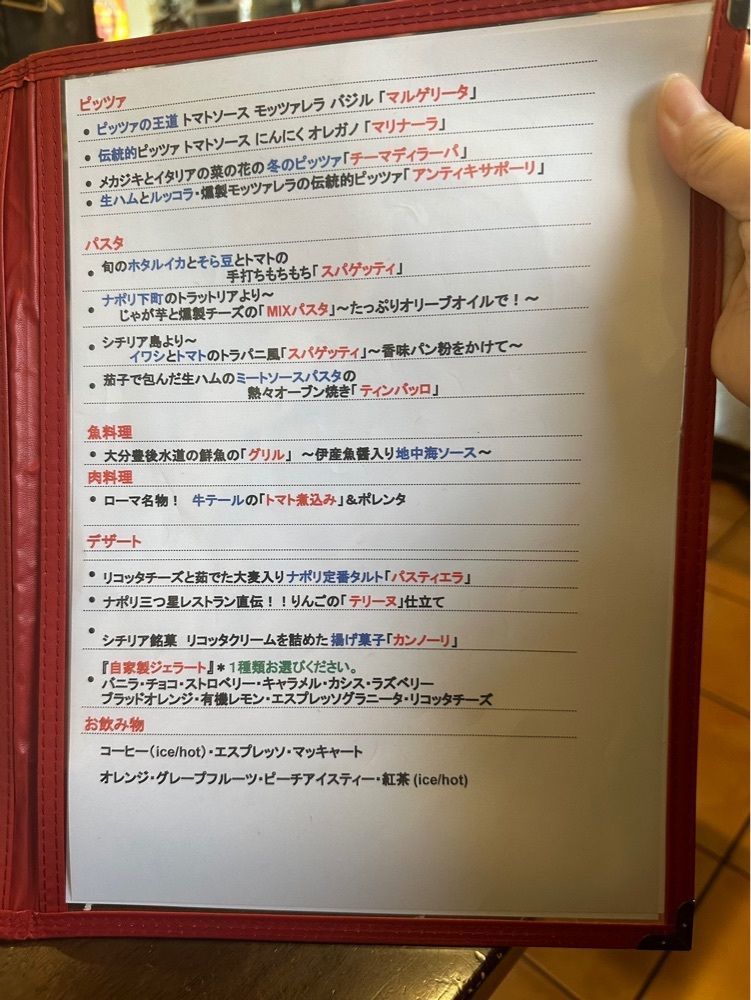 ピッツァ
• ピッツァの王道 トマトソース モッツァレラ バジル 「マルゲリータ」
• 伝統的ピッツァ トマトソース にんにく オレガノ 「マリナーラ」
• メカジキとイタリアの菜の花の 冬のピッツァ「チーマディラーパ」
• 生ハムとルッコラ・燻製モッツァレラの伝統的ピッツァ「アンティキサポーリ」
パスタ
• 旬のホタルイカとそら豆とトマトの
手打ちもちもち「スパゲッティ」
• ナポリ下町のトラットリアより〜
じゃが芋と燻製チーズの「MIXパスタ」〜たっぷりオリーブオイルで！〜
• シチリア島より〜
イワシとトマトのトラパニ風「スパゲッティ」〜香味パン粉をかけて〜
• 茄子で包んだ生ハムのミートソースパスタの
熱々オーブン焼き「ティンバッロ」
魚料理
• 大分豊後水道の鮮魚の「グリル」 〜伊産魚醤入り地中海ソース〜
肉料理
• ローマ名物！ 牛テールの「トマト煮込み」＆ポレンタ
デザート
• リコッタチーズと茹でた大麦入りナポリ定番タルト「パスティエラ」
• ナポリ三つ星レストラン直伝！！りんごの「テリーヌ」仕立て
• シチリア銘菓 リコッタクリームを詰めた 揚げ菓子「カンノーリ」
• 『自家製ジェラート』＊１種類お選びください。
バニラ・チョコ・ストロベリー・キャラメル・カシス・ラズベリー
ブラッドオレンジ・有機レモン・エスプレッソグラニータ・リコッタチーズ
お飲み物
コーヒー（ice/hot）・エスプレッソ・マッキャート
オレンジ・グレープフルーツ・ピーチアイスティー・紅茶 (ice/hot)